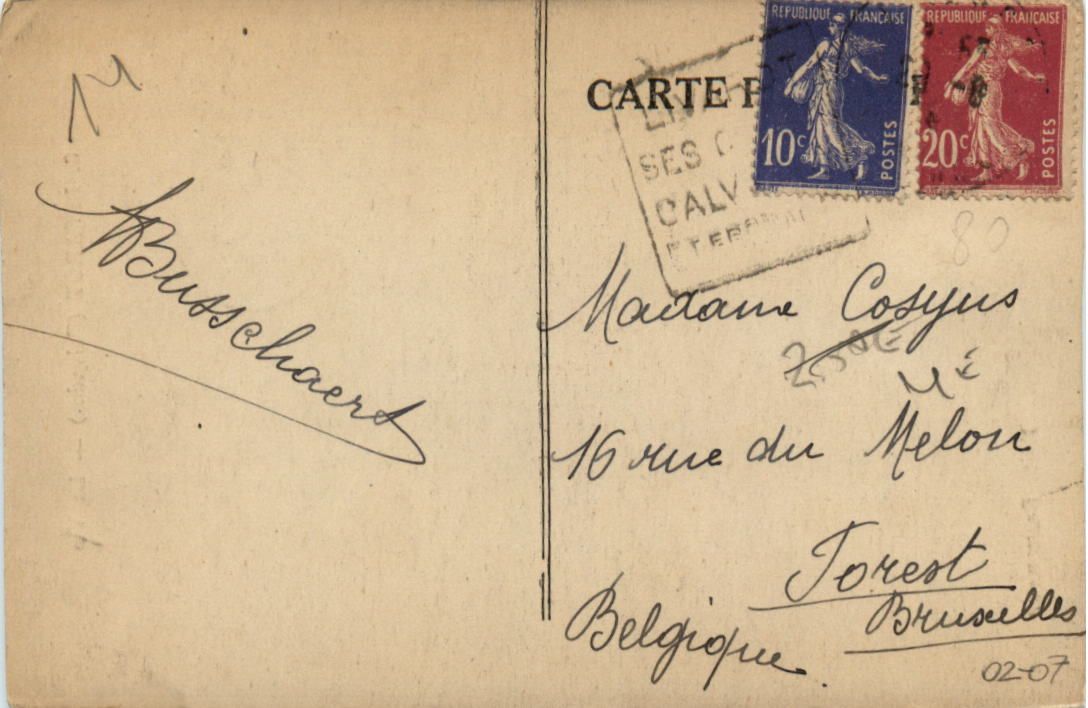 Busschaert
CARTE P
REPUBLIQUE FRANÇAISE
10c
POSTES
REPUBLIQUE FRANÇAISE
20c
POSTES
SES
CALV
80
Madame Cosyns
16 rue du Melon
Forest
Bruxelles
Belgique
02-07